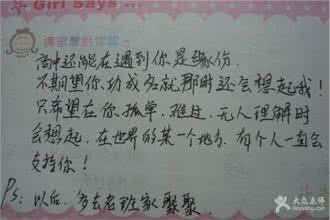 Girl Says...
偶像想对你说～
高中还能在遇到你是缘份
不期望你功成名就那时还会想起我！
只希望在你孤单、难过、无人理解时
会想起，在世界的某一个地方，有个人一直会
支持你！
Ps：以后，多去老班家聚聚
大众点评
dianping.com